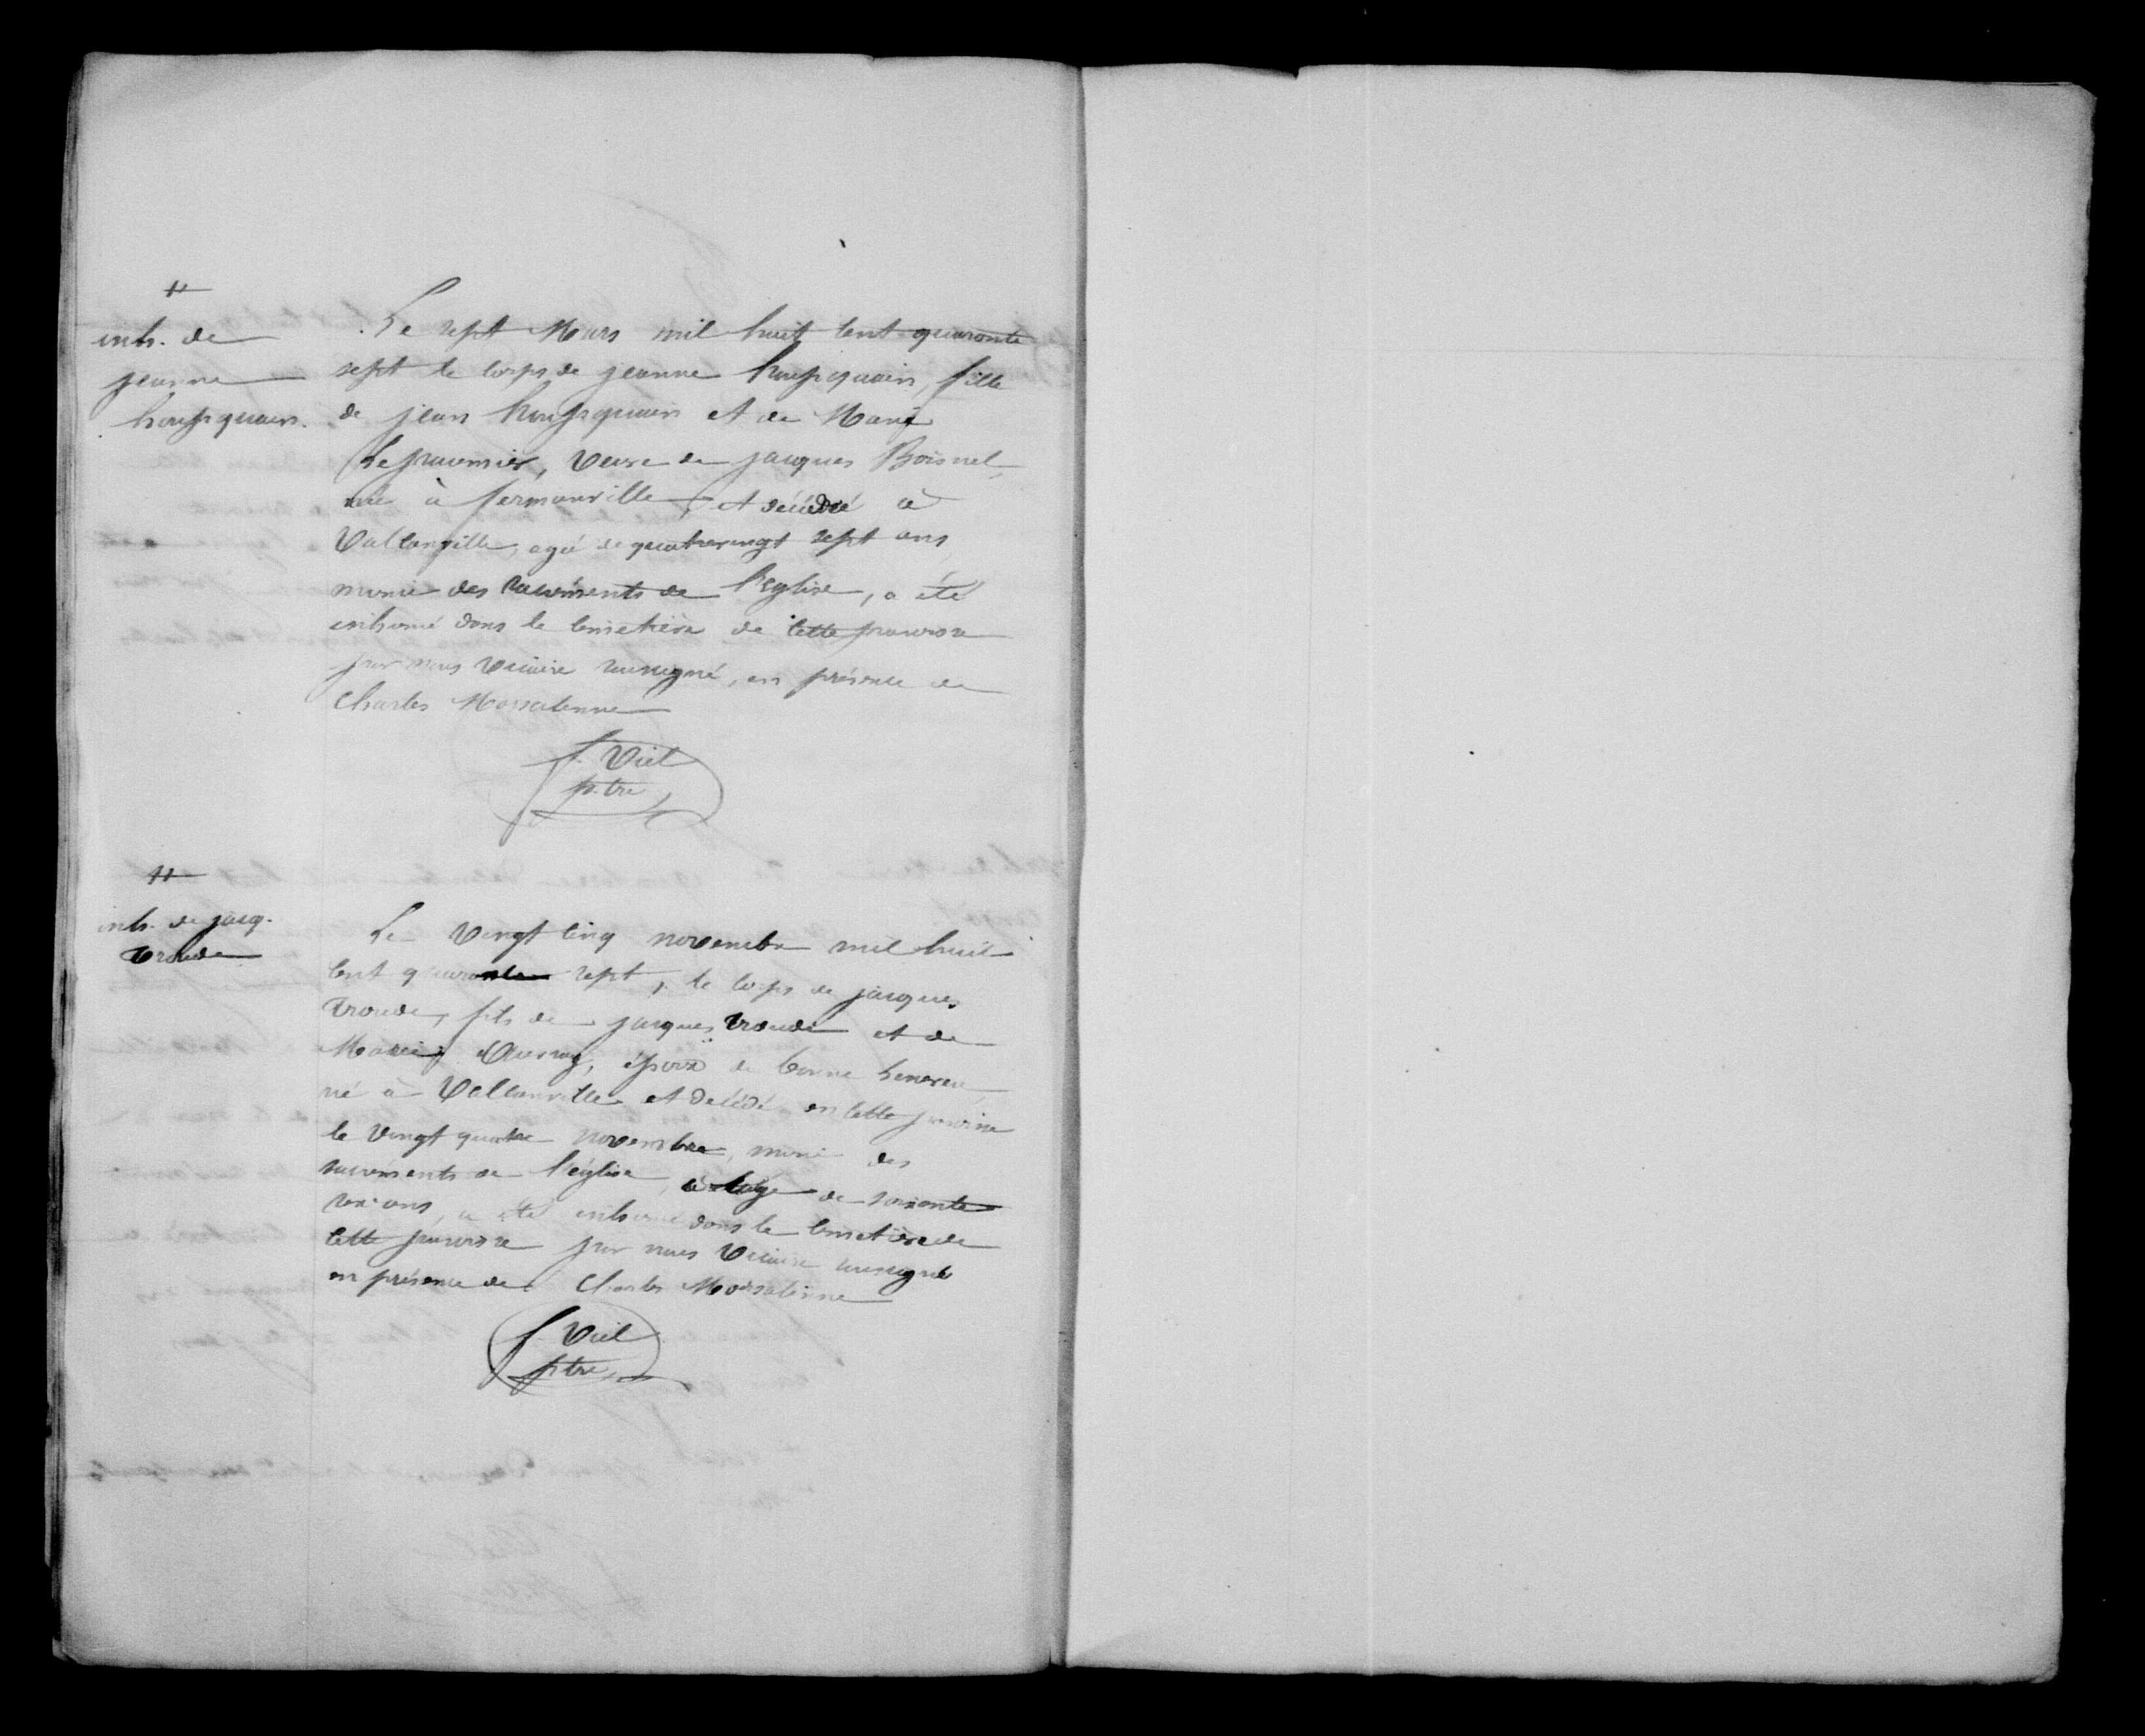 inh. de
jeanne
houpquain.
Le sept Mars mil huit cent quarante
sept le corps de jeanne houpquain, fille
de jean houpquain et de Marie
Lepaumier, veuve de jacques Boisnel,
née à fermanville, et décédée à
Valcanville, agée de quatrevingt sept ans
munie des sacréments de l'église, a été
inhumé dans le cimetière de cette paroisse
par nous Vicaire soussigné, en présence de
Charles Morsalinne
f. Viel
p.tre
inh. de jacq.
troude
Le vingt cinq novembre mil huit
cent quarante sept, le corps de jacques
troude, fils de jacques troude et de
Marie, époux de bonne
né à Valcanville et décédé en cette paroisse
le vingt quatre novembre, muni des
sacrements de l'église, à l'age de soixante
ans, a été inhumé dans le cimetière de
cette paroisse par nous Vicaire soussigné
en présence de Charles Morsalinne
f. Viel
ptre